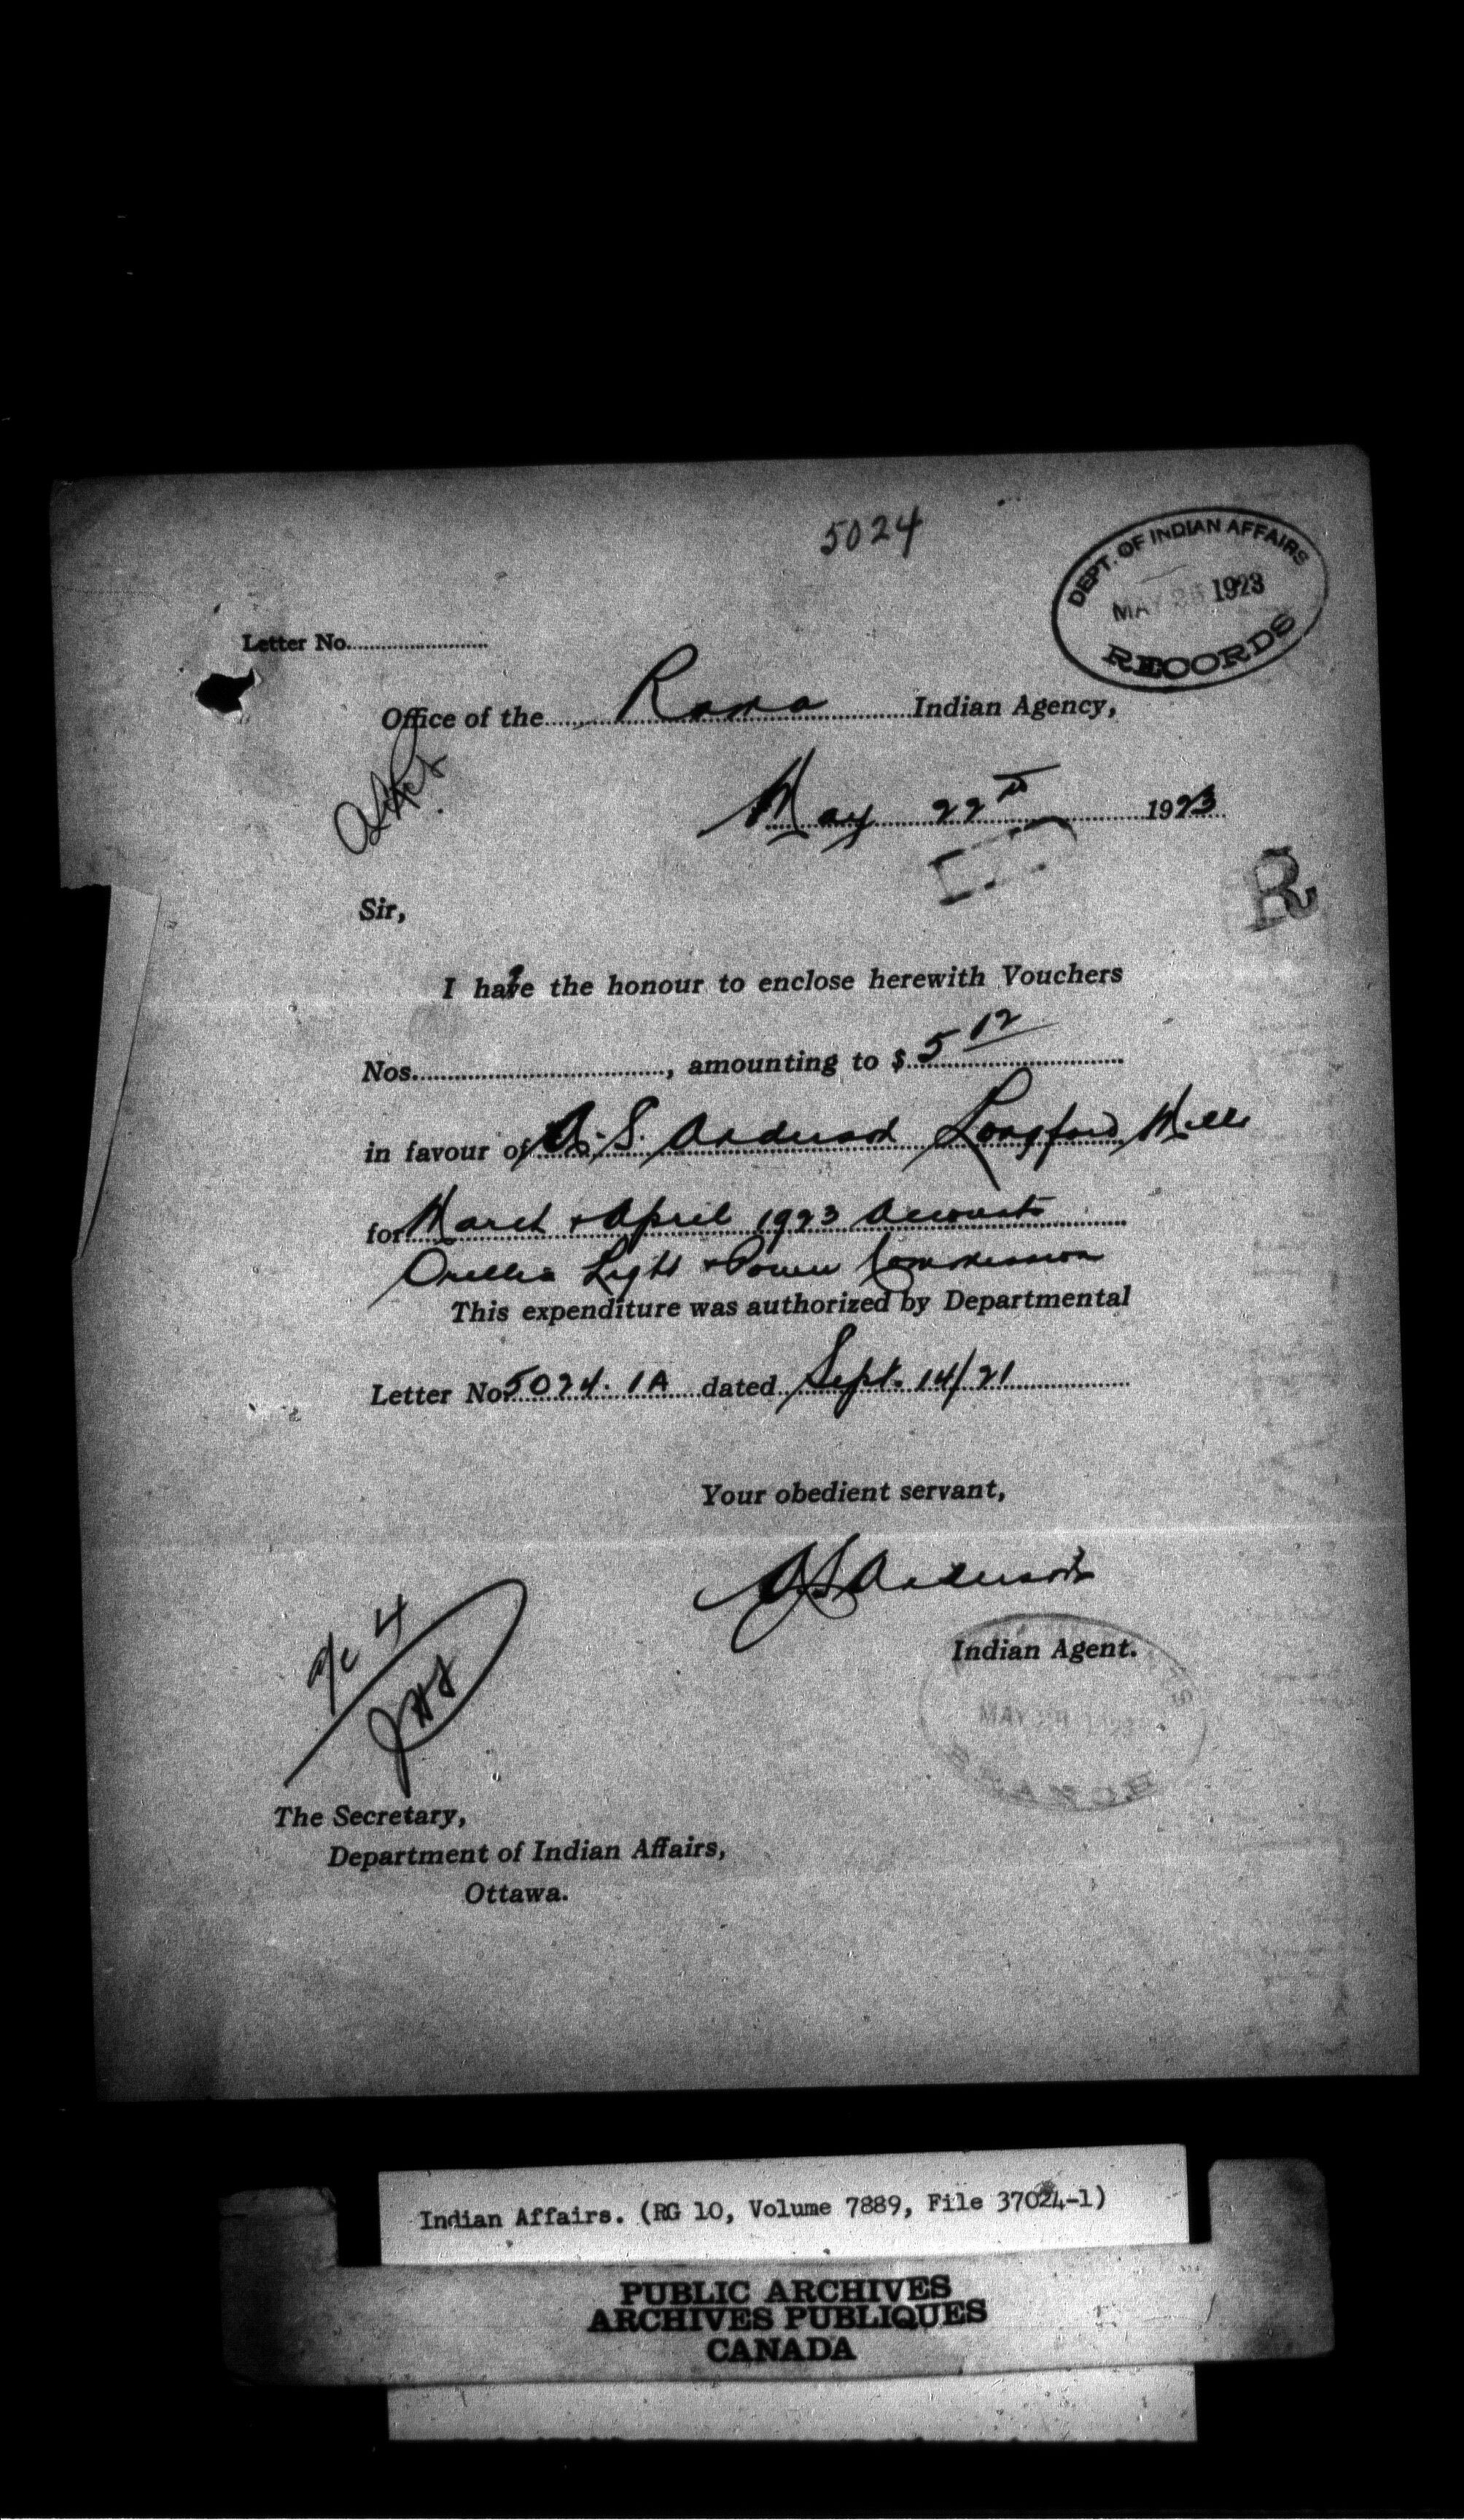 5024
DEPT. OF INDIAN AFFAIRS
MAY 1923
RECORDS
Letter No.
Office of the Rama Indian Agency,
May 22nd 1923
R
Sir,
I have the honour to enclose herewith Vouchers
Nos. , amounting to $ 5 12
in favour of A. S. Anderson Longford Mills
for March & April 1923 Accounts
Orillia Light & Power Commission
This expenditure was authorized by Departmental
Letter No. 5024. 1A dated Sept. 14/21
Your obedient servant,
A S Anderson
Indian Agent.
a/c 4
MAY
The Secretary,
Department of Indian Affairs,
Ottawa.
Indian Affairs. (RG 10, Volume 7889, File 37024-1)
PUBLIC ARCHIVES
ARCHIVES PUBLIQUES
CANADA